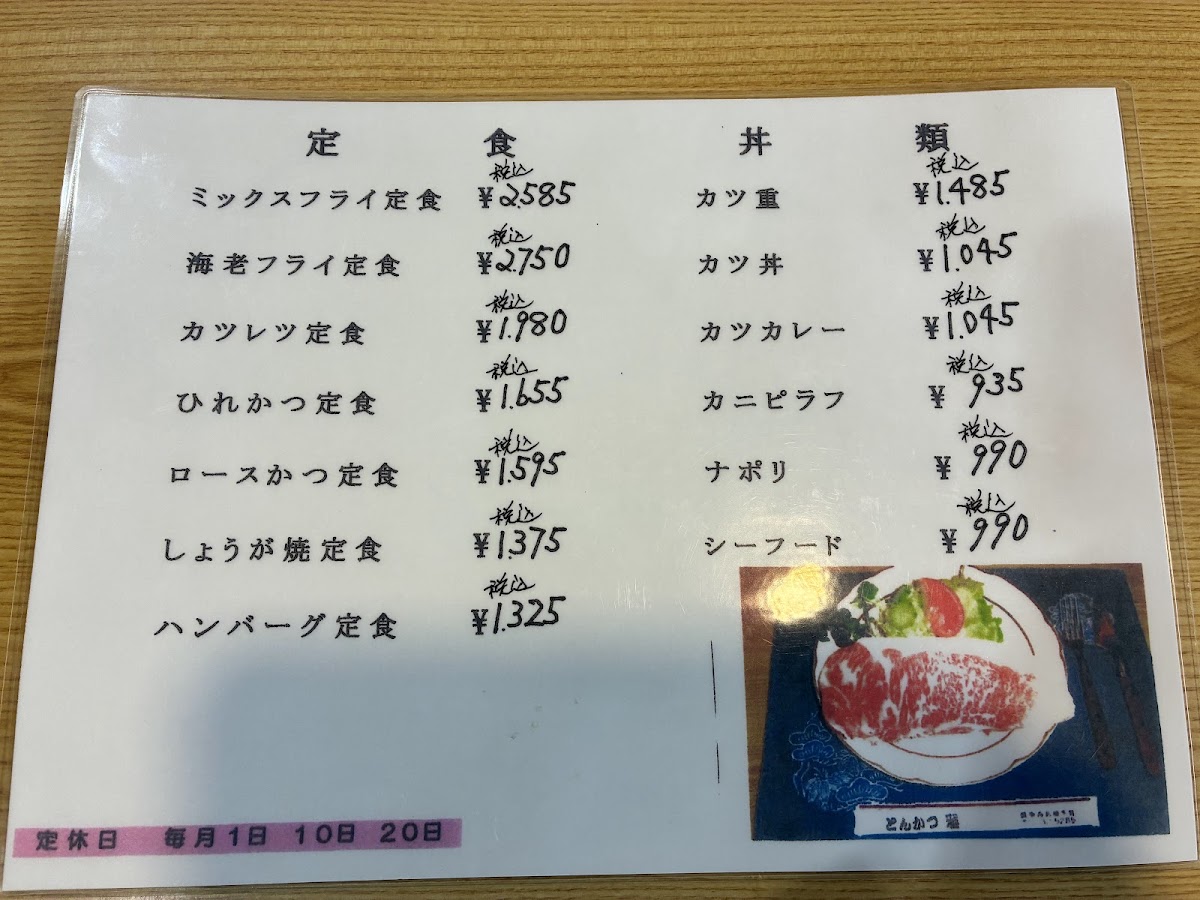 定食
税込
ミックスフライ定食 ¥2.585
税込
海老フライ定食 ¥2.750
税込
カツレツ定食 ¥1.980
税込
ひれかつ定食 ¥1.655
税込
ロースかつ定食 ¥1.595
税込
しょうが焼定食 ¥1.375
税込
ハンバーグ定食 ¥1.325
丼類
税込
カツ重 ¥1.485
税込
カツ丼 ¥1.045
税込
カツカレー ¥1.045
税込
カニピラフ ¥935
税込
ナポリ ¥990
税込
シーフード ¥990
とんかつ
定休日 毎月1日 10日 20日